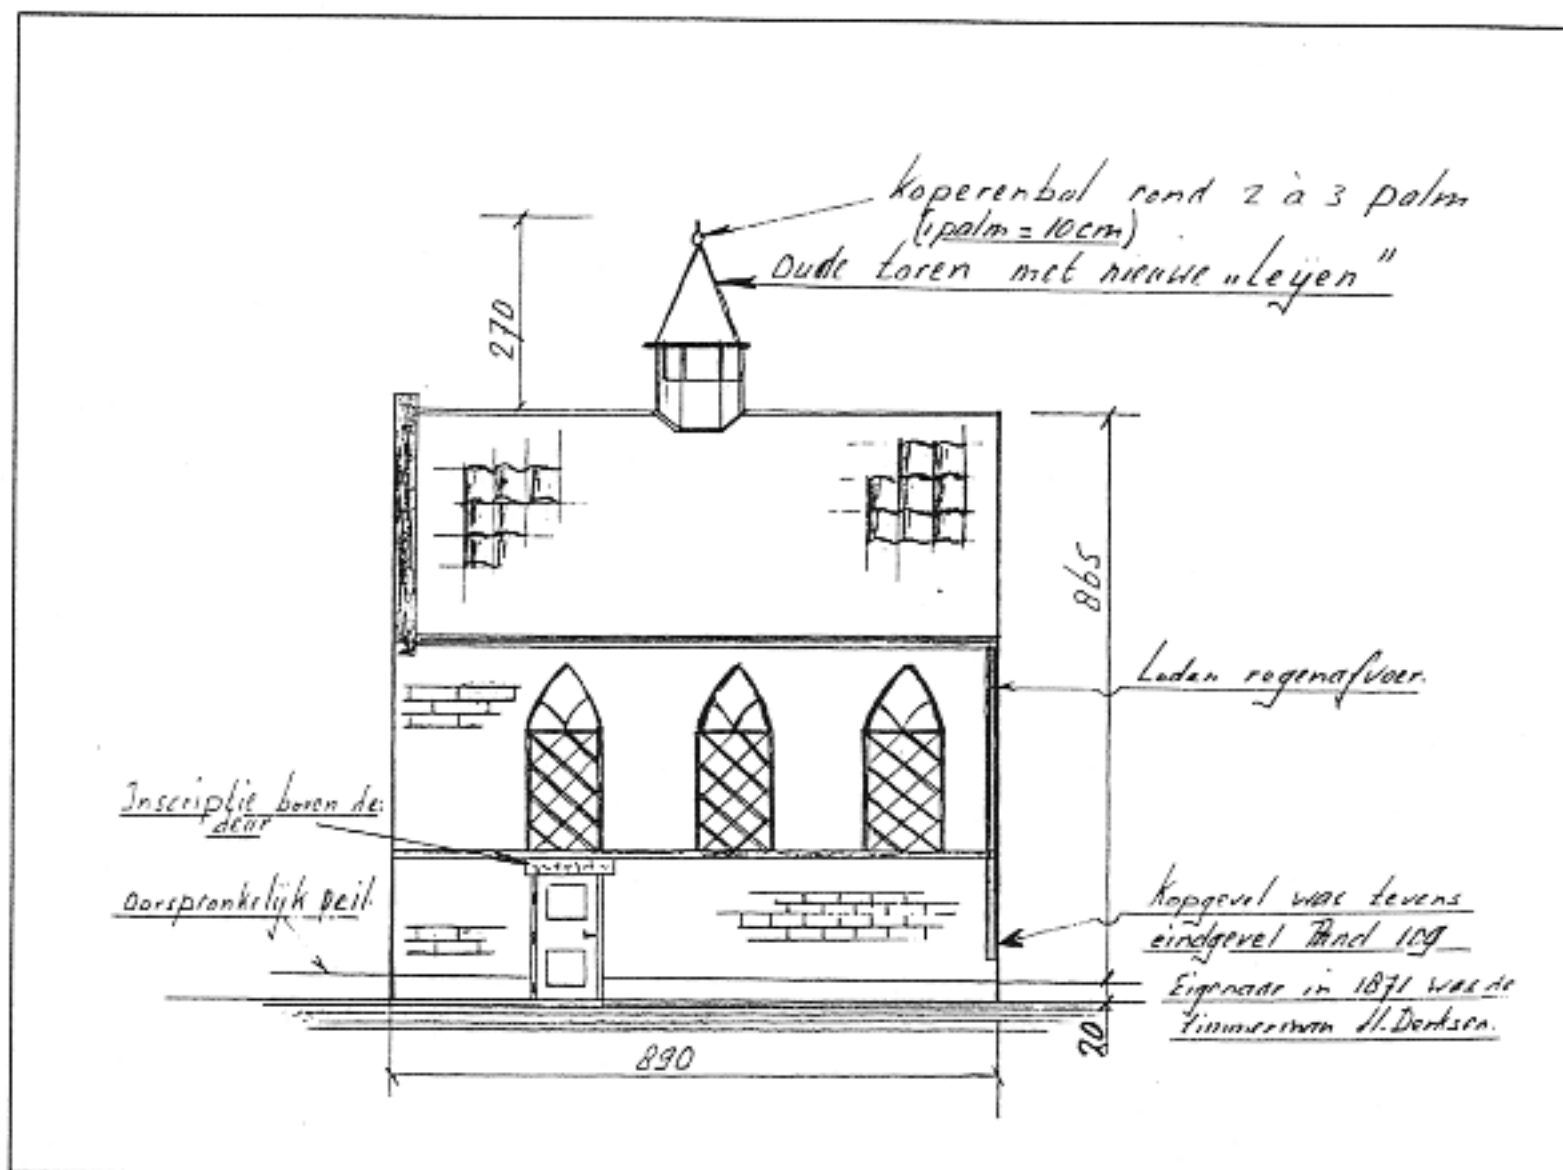 koperenbol rond 2 à 3 palm
(1 palm = 10 cm)
Oude toren met nieuwe „Leijen”
270
865
Loden regenafvoer.
Inscriptie boven de
deur
Oorspronkelijk peil.
Kopgevel was tevens
eindgevel Pand 109
Eigenaar in 1871 was de
timmerman H. Derksen.
20
890